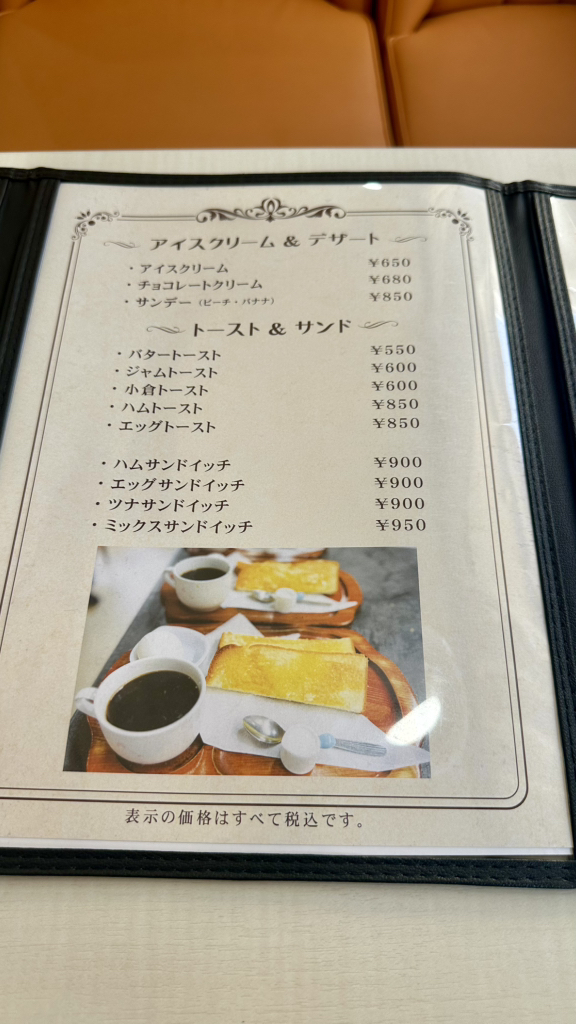 アイスクリーム & デザート
・アイスクリーム ¥650
・チョコレートクリーム ¥680
・サンデー（ピーチ・バナナ） ¥850
トースト & サンド
・バタートースト ¥550
・ジャムトースト ¥600
・小倉トースト ¥600
・ハムトースト ¥850
・エッグトースト ¥850
・ハムサンドイッチ ¥900
・エッグサンドイッチ ¥900
・ツナサンドイッチ ¥900
・ミックスサンドイッチ ¥950
表示の価格はすべて税込です。